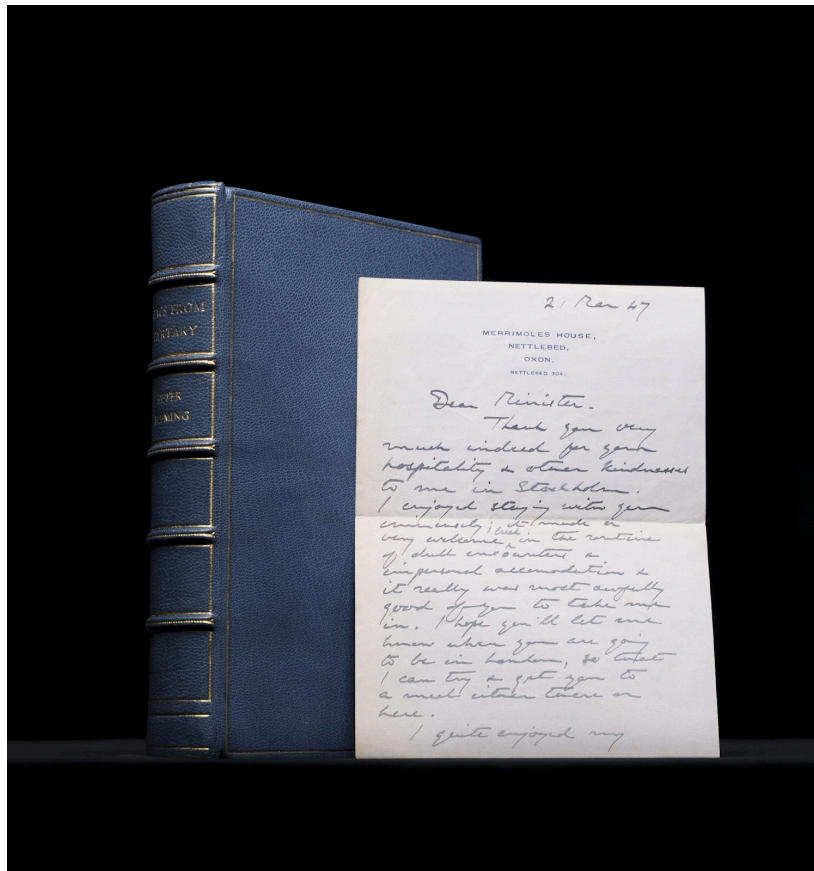 WS FROM
RTARY
TER
EMING
2 Mar 47
MERRIMOLES HOUSE,
NETTLEBED,
OXON.
NETTLEBED 304.
Dear Minister.
Thank you very
much indeed for your
hospitality & other kindnesses
to me in Stockholm.
I enjoyed staying with you
immensely; it made a
very welcome break in the routine
of dull encounters &
impersonal accomodation &
it really was most awfully
good of you to take me
in. I hope you'll let me
know when you are going
to be in London, so that
I can try & get you to
a meal either there or
here.
I quite enjoyed my